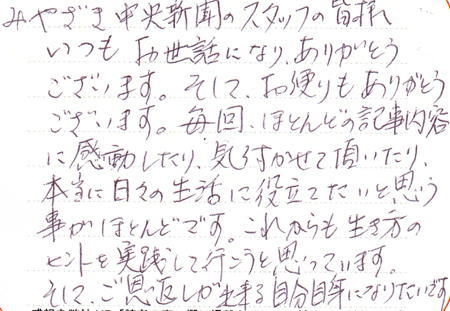 みやざき中央新聞のスタッフの皆様
いつもお世話になり、ありがとう
ございます。そして、お便りもありがとう
ございます。毎回、ほとんどの記事内容
に感動したり、気付かせて頂いたり、
本当に日々の生活に役立てたいと思う
事がほとんどです。これからも生き方の
ヒントを実践して行こうと思っています。
そして、ご恩返しが出来る自分自身になりたいです